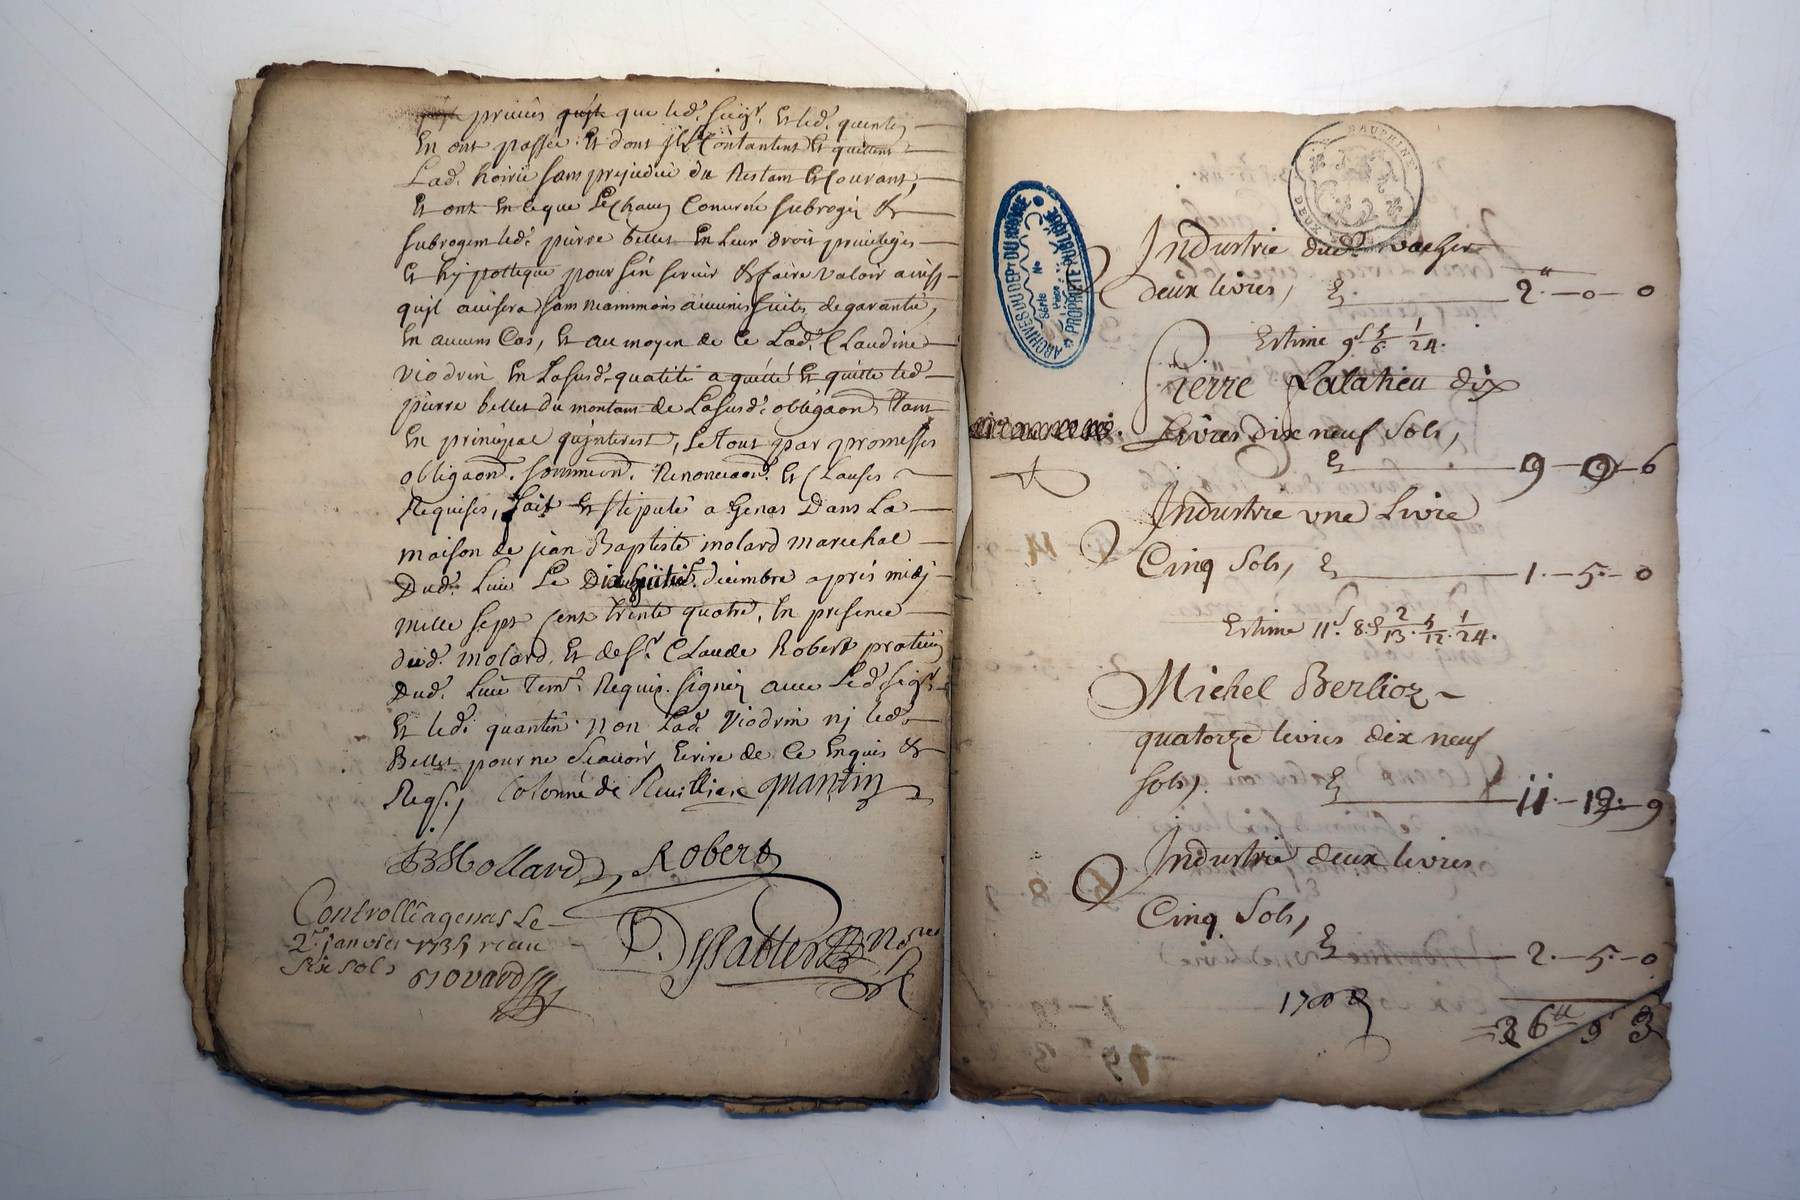 privées que led. sieur. Et led. quentin
En ont passée. Et dont Contantent Et quittent
Lad. hoirie sans prejudice du Restant Et Courant,
Et ont En ce que Les touche Conserné subrogés &
subrogent led. pierre bellet En Leur droit privileges
Et hypotteque pour s'en servir & faire valoir ainsy
quil avisera sans neammoins aucunes suites de garantie,
En aucuns Cas, Et au moyen de Ce Lad. Claudine
viodrin En Lasusd. qualité a quitté Et quitte led.
pierre bellet du montant de Lasusd. obligaon, tant
En principal qu'interest, Le tout par promesses
obligaon. soumision. Renonciaon. Et Clauses
Requises, fait Et stipulé a Genas Dans La
maison de jean Baptiste molard marechal
Dud. Lieu Le decembre apres midy
mille sept Cent trente quatre, En presence
dud. molard, Et de Sr. Claude Robert praticien
Dud. Lieu Tem. Requis. signés avec Led. sigr.
Et led. quantin non Lad. viodrin ny led.
Bellet pour ne sçavoir Ecrire de Ce Enquis &
Reqs., Colonné de quantin
JB Mollard, Robert
Controllé a genas Le
2e. janvier 1735 receu
six sols
ARCHIVES DU DEPT DU RHÔNE
Série
No
Pièce
PROPRIÉTÉ PUBLIQUE
DAUPHINE
DEUX
Industrie dud.
deux livres, 2.—0—0
Estime 9s 5/6 1/24.
Pierre Falatieu dix
Livres dix neuf sols,
9—9—6
Industrie une Livre
Cinq sols, 1.—5.—0
Estime 11s. 8.d 2/13. 5/12. 1/24.
Michel Berlioz
quatorze livres dix neuf
sols, 11.—19.—9
Industrie deux livres
Cinq sols,
2.—5.—0
26tt 9s 3